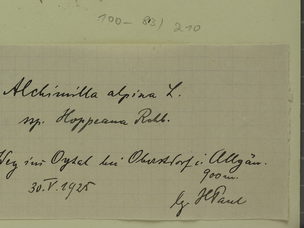 100 – 83) 210
Alchimilla alpina L.
ssp. Hoppeana Rchb.
Weg ins Oytal bei Oberstdorf i. Allgäu.
900 m.
30.V.1925
lg. H Paul